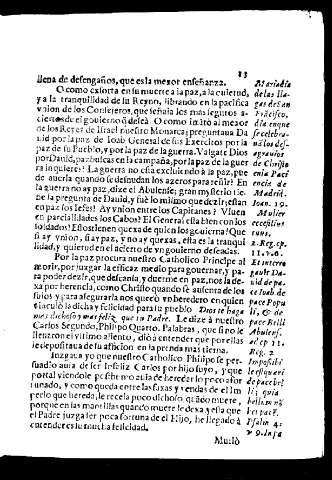 23
llena de desengaños, que es la mexor enseñanza.
O como exsorta en su muerte a la paz, a la quietud,
y a la tranquilidad de su Reyno, librando en la pacifica
vnion de los Consejeros, que señala los mas seguros a-
ciertos de el gouierno q̃ desea. O como imitò al mexor
de los Reyes de Israel nuestro Monarca; preguntaua Da
uid por la paz de Ioab General de sus Exercitos por la
paz de su Pueblo, y por la paz de la guerra. Valgate Dios
por Dauid, paz buscas en la campaña, por la paz de la guer
ra inquieres? La guerra no està excluiendo à la paz, pues
de auerla quando se desnudan los azeros para reñir? En
la guerra no ay paz, dize el Abulense; gran mysterio tie-
ne la pregunta de Dauid, y fuè lo mismo que dezir; estan
en paz los Iefes? Ay vnion entre los Capitanes? Viuen
en parcialidades los Cabos? El General esta bien con los
soldados? Estos tienen quexa de quien los gouierna? Que
si ay vnion, si ay paz, y no ay quexas, esta es la tranqui
lidad, y quietud en el acierto de vn gouierno deseadas.
Por la paz procura nuestro Catholico Principe al
morir, por juzgar la eficaz medio para gouernar, y pa-
ra poder dezir, que descansa, y duerme en paz, nos la de-
xa por herencia, como Christo quando se ausenta de los
suios, y para asegurarla nos quedò vn heredero en quien
vinculò la dicha y felicidad para su pueblo Dios te haga
mas dichoso y mas feliz, que tu Padre. Le dize à nuestro
Carlos Segundo, Philipo Quarto. Palabras, que si no le
llenaron el vitimo aliento, diò à entender que por ellas
le depositaua de su afficion en la prenda mas tierna.
Iuzgara yo que nuestro Catholico Philipo se per-
suadio auia de ser Infeliz Carlos por hijo suyo, y que
portal viendole pequeño auia de heredar lo poco afor
tunado, y como queda entre las faxas y sendas de el Im
perio que hereda, le recela poco dichoso, quãdo muere,
porque en las mantillas quando muere le dexa y esta que
el Padre juzga ser poca fortuna de el Hijo, he llegado à
entender es su mucha felicidad.
Muriò
Maria dia
de las lla-
gas de San
Frãcisco,
dia en que
se celebra-
uã los des-
agrauios
de Christo
en la Paci
encia de
Madrid.
Ioan. 19.
Mulier
ecce filius
tuus.
2. Reg. cp.
11. v. 6.
Et interro
gauit Da-
uid de pa-
ce Ioab de
pace Popu
li, & de
pace Belli
Abulens.
ad cp 11.
Reg. 2
Impossibi
le est quæri
de pace bel
li; quia
bellum nõ
est pax.
Psalm 4.
v 9. In pa